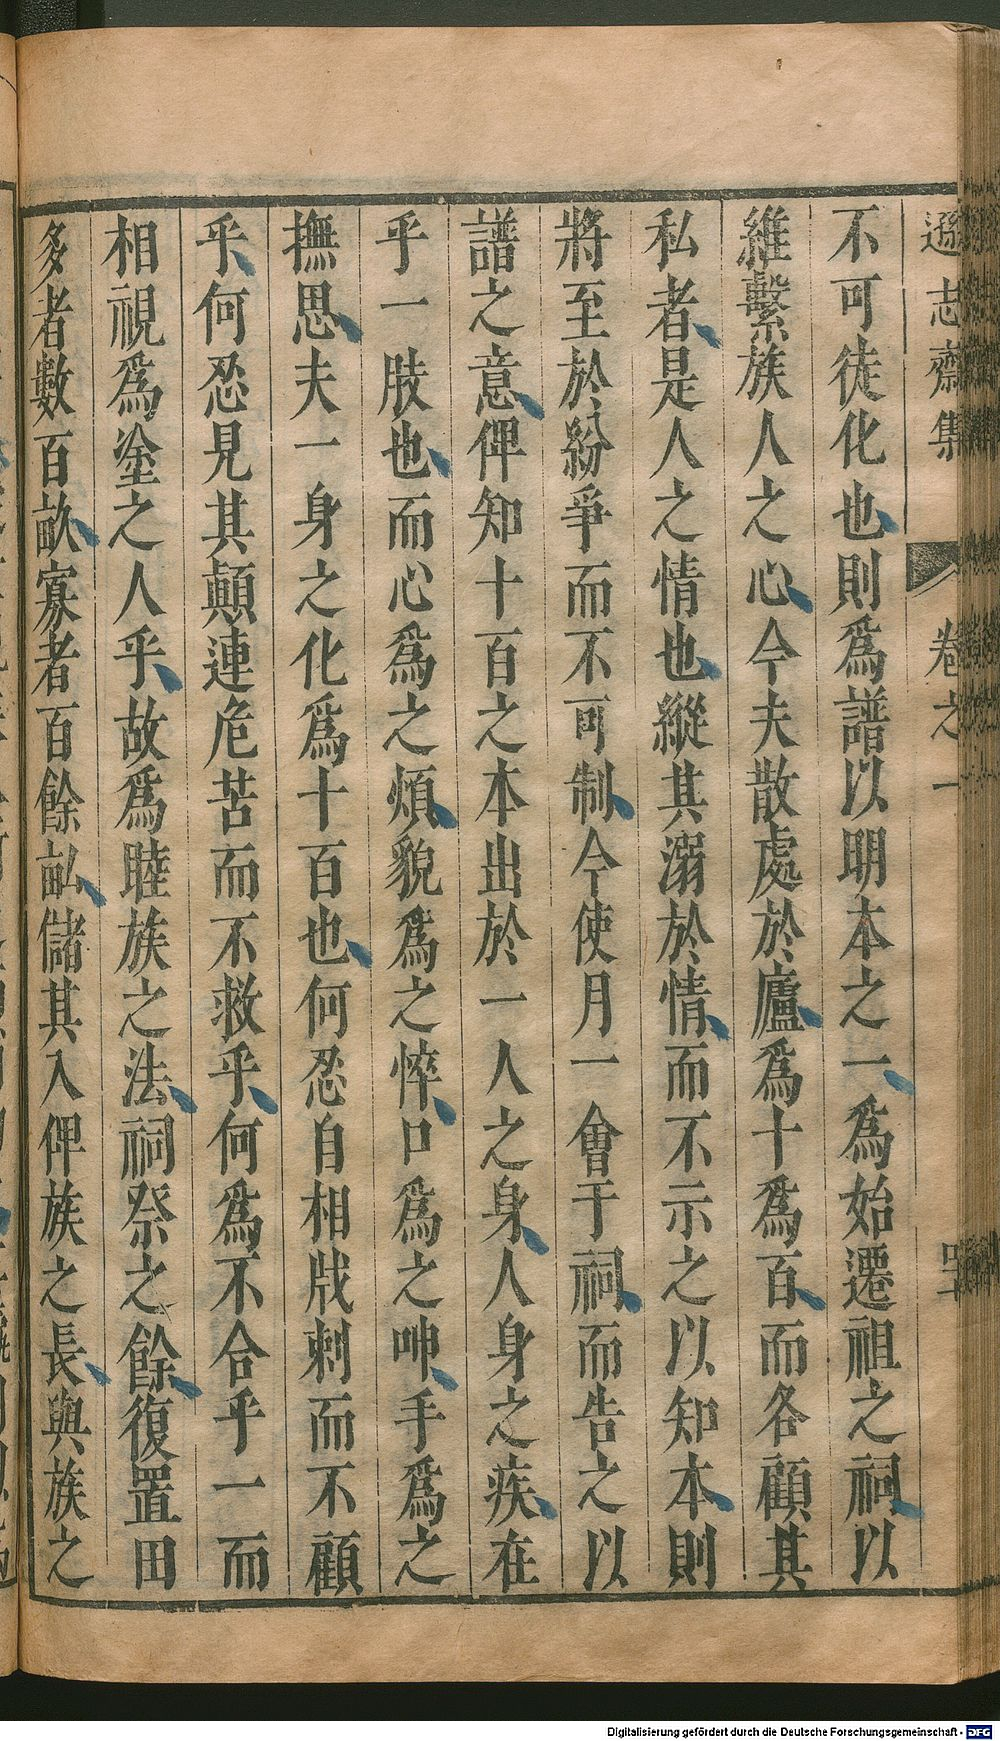 遜志齋集
卷之一
四十
不可徒化也則爲譜以明本之一爲始遷祖之祠以
維繫族人之心今夫散處於廬爲十爲百而各顧其
私者是人之情也縱其溺於情而不示之以知本則
將至於紛爭而不可制今使月一會于祠而告之以
譜之意俾知十百之本出於一人之身人身之疾在
乎一肢也而心爲之煩貌爲之悴口爲之呻手爲之
撫思夫一身之化爲十百也何忍自相戕刺而不顧
乎何忍見其顛連危苦而不救乎何爲不合乎一而
相視爲塗之人乎故爲睦族之法祠祭之餘復置田
多者數百畝寡者百餘畝儲其入俾族之長與族之
Digitalisierung gefördert durch die Deutsche Forschungsgemeinschaft - DFG